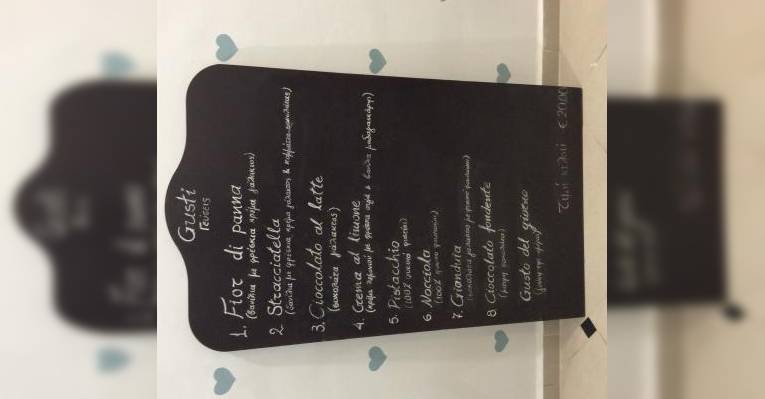 Gusti
Γεύσεις
1. Fior di panna
(βανίλια με φρέσκια κρέμα γάλακτος)
2 Stracciatella
(βανίλια με φρέσκια κρέμα γάλακτος & κομμάτια σοκολάτας)
3. Cioccolato al latte
(σοκολάτα γάλακτος)
4. Crema al limone
(κρέμα λεμονιού με φρέσκα αυγά & βανίλια μαδαγασκάρης)
5. Pistacchio
(100% φυσικό φιστίκι)
6 Nocciola
(100% φυσικό φουντούκι)
7. Gianduia
(σοκολάτα γάλακτος με φυσικό φουντούκι)
8 Cioccolato fondente
(μαύρη σοκολάτα)
Gusto del giorno
(γεύση της ημέρας)
Τιμή κιλού €20,00